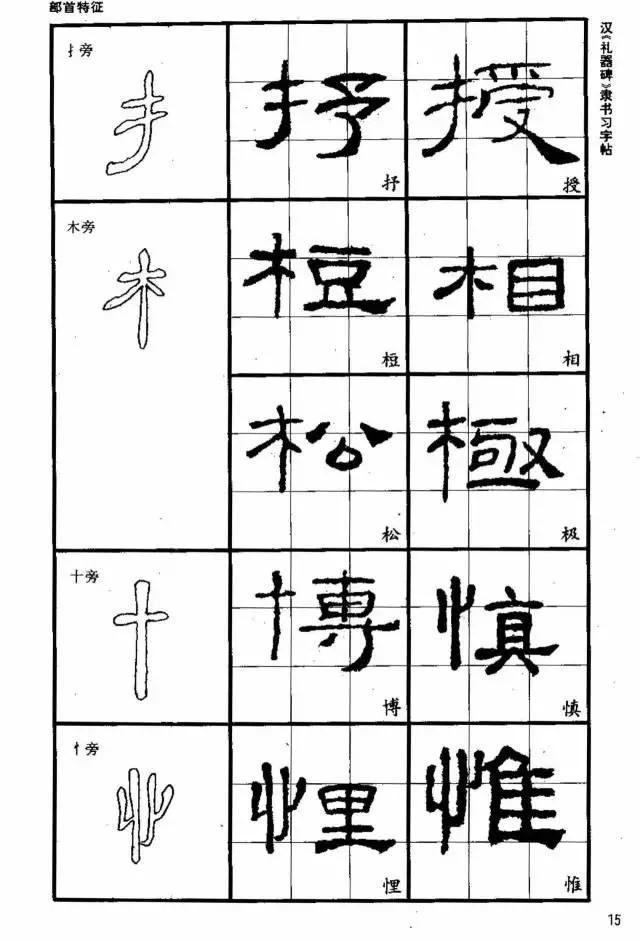 部首特征
汉《礼器碑》隶书习字帖
扌旁
抒 授
抒 授
木旁
桓 相
桓 相
松 極
松 极
十旁
博 慎
博 慎
忄旁
悝 惟
悝 惟
15